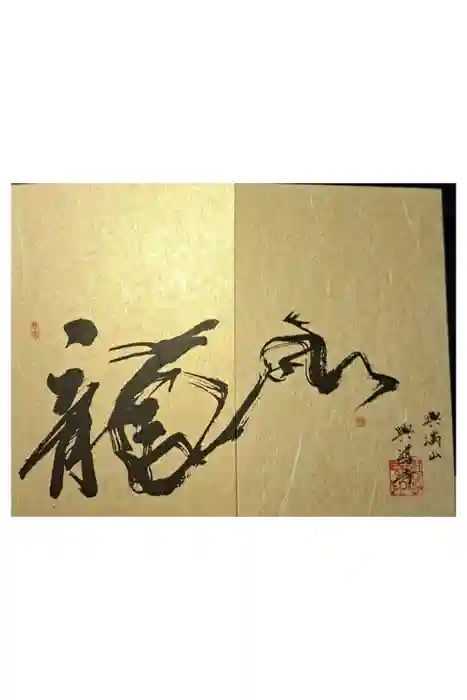 龍
興満山
興導寺